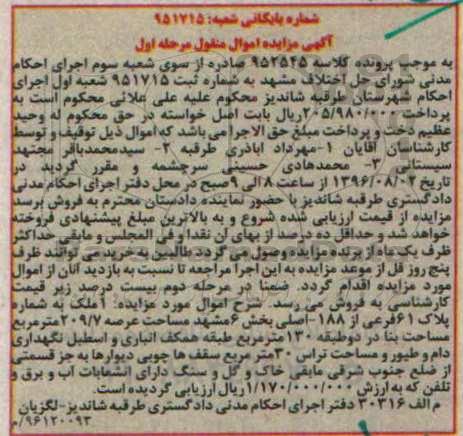 شماره بایگانی شعبه: ۹۵۱۷۱۵
آگهی مزایده اموال منقول مرحله اول
به موجب پرونده کلاسه ۹۵۲۵۴۵ صادره از سوی شعبه سوم اجرای احکام
مدنی شورای حل اختلاف مشهد به شماره ثبت ۹۵۱۷۱۵ شعبه اول اجرای
احکام شهرستان طرقبه شاندیز محکوم علیه علی علائی محکوم است به
پرداخت ۲۰۵/۹۸۰/۰۰۰ریال بابت اصل خواسته در حق محکوم له وحید
عظیم دخت و پرداخت مبلغ حق الاجرا می باشد که اموال ذیل توقیف و توسط
کارشناسان آقایان ۱-مهرداد اباذری طرقبه ۲- سیدمحمدباقر مجتهد
سیستانی ۳- محمدهادی حسینی سرچشمه و مقرر گردید در
تاریخ ۱۳۹۶/۰۸/۰۲ از ساعت ۸ الی ۹صبح در محل دفتر اجرای احکام مدنی
دادگستری طرقبه شاندیز با حضور نماینده دادستان محترم به فروش برسد
مزایده از قیمت ارزیابی شده شروع و به بالاترین مبلغ پیشنهادی فروخته
خواهد شد و حداقل ده درصد از بهای آن نقدا و فی المجلس و مابقی حداکثر
ظرف یک ماه از برنده مزایده وصول می گردد طالبین به خرید می توانند ظرف
پنج روز قل از موعد مزایده به این اجرا مراجعه تا نسبت به بازدید آنان از اموال
مورد مزایده اقدام گردد. ضمنا در مرحله دوم بیست درصد زیر قیمت
کارشناسی به فروش می رسد. شرح اموال مورد مزایده: ۱ملک به شماره
پلاک ۶۱فرعی از ۱۸۸-اصلی بخش ۶مشهد مساحت عرصه ۲۰۹/۷مترمربع
مساحت بنا در دوطبقه ۱۳۰مترمربع طبقه همکف انباری و اسطبل نگهداری
دام و طیور و مساحت تراس ۳۰متر مربع سقف ها چوبی دیوارها به جز قسمتی
از ضلع جنوب شرقی مابقی خاک و گل و سنگ دارای انشعابات آب و برق و
تلفن که به ارزش ۱/۱۷۰/۰۰۰/۰۰۰ریال ارزیابی گردیده است.
م الف ۳۰۳۱۶ دفتر اجرای احکام مدنی دادگستری طرقبه شاندیز-لگزیان
۹۶۱۲۰۰۹۳/م